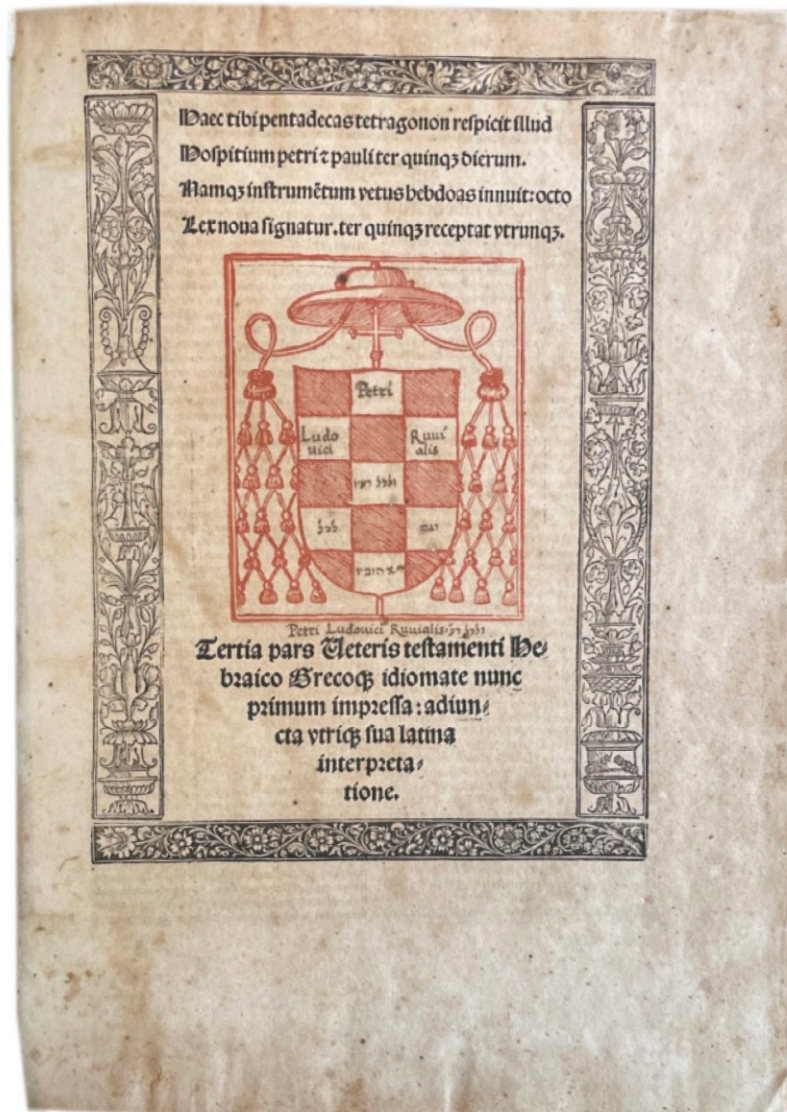 Haec tibi pentadecas tetragonon respicit illud
Hospitium petri ⁊ pauli ter quinqꝫ dierum.
Namqꝫ instrumētum vetus hebdoas innuit: octo
Lex noua signatur. ter quinqꝫ receptat vtrunqꝫ.
Petri
Ludo Ruui
uici alis
Petri Ludouici Ruuialis
Tertia pars Ueteris testamenti He⸗
braico Grecoqꝫ idiomate nunc
primum impressa: adiun⸗
cta vtriqꝫ sua latina
interpreta⸗
tione.